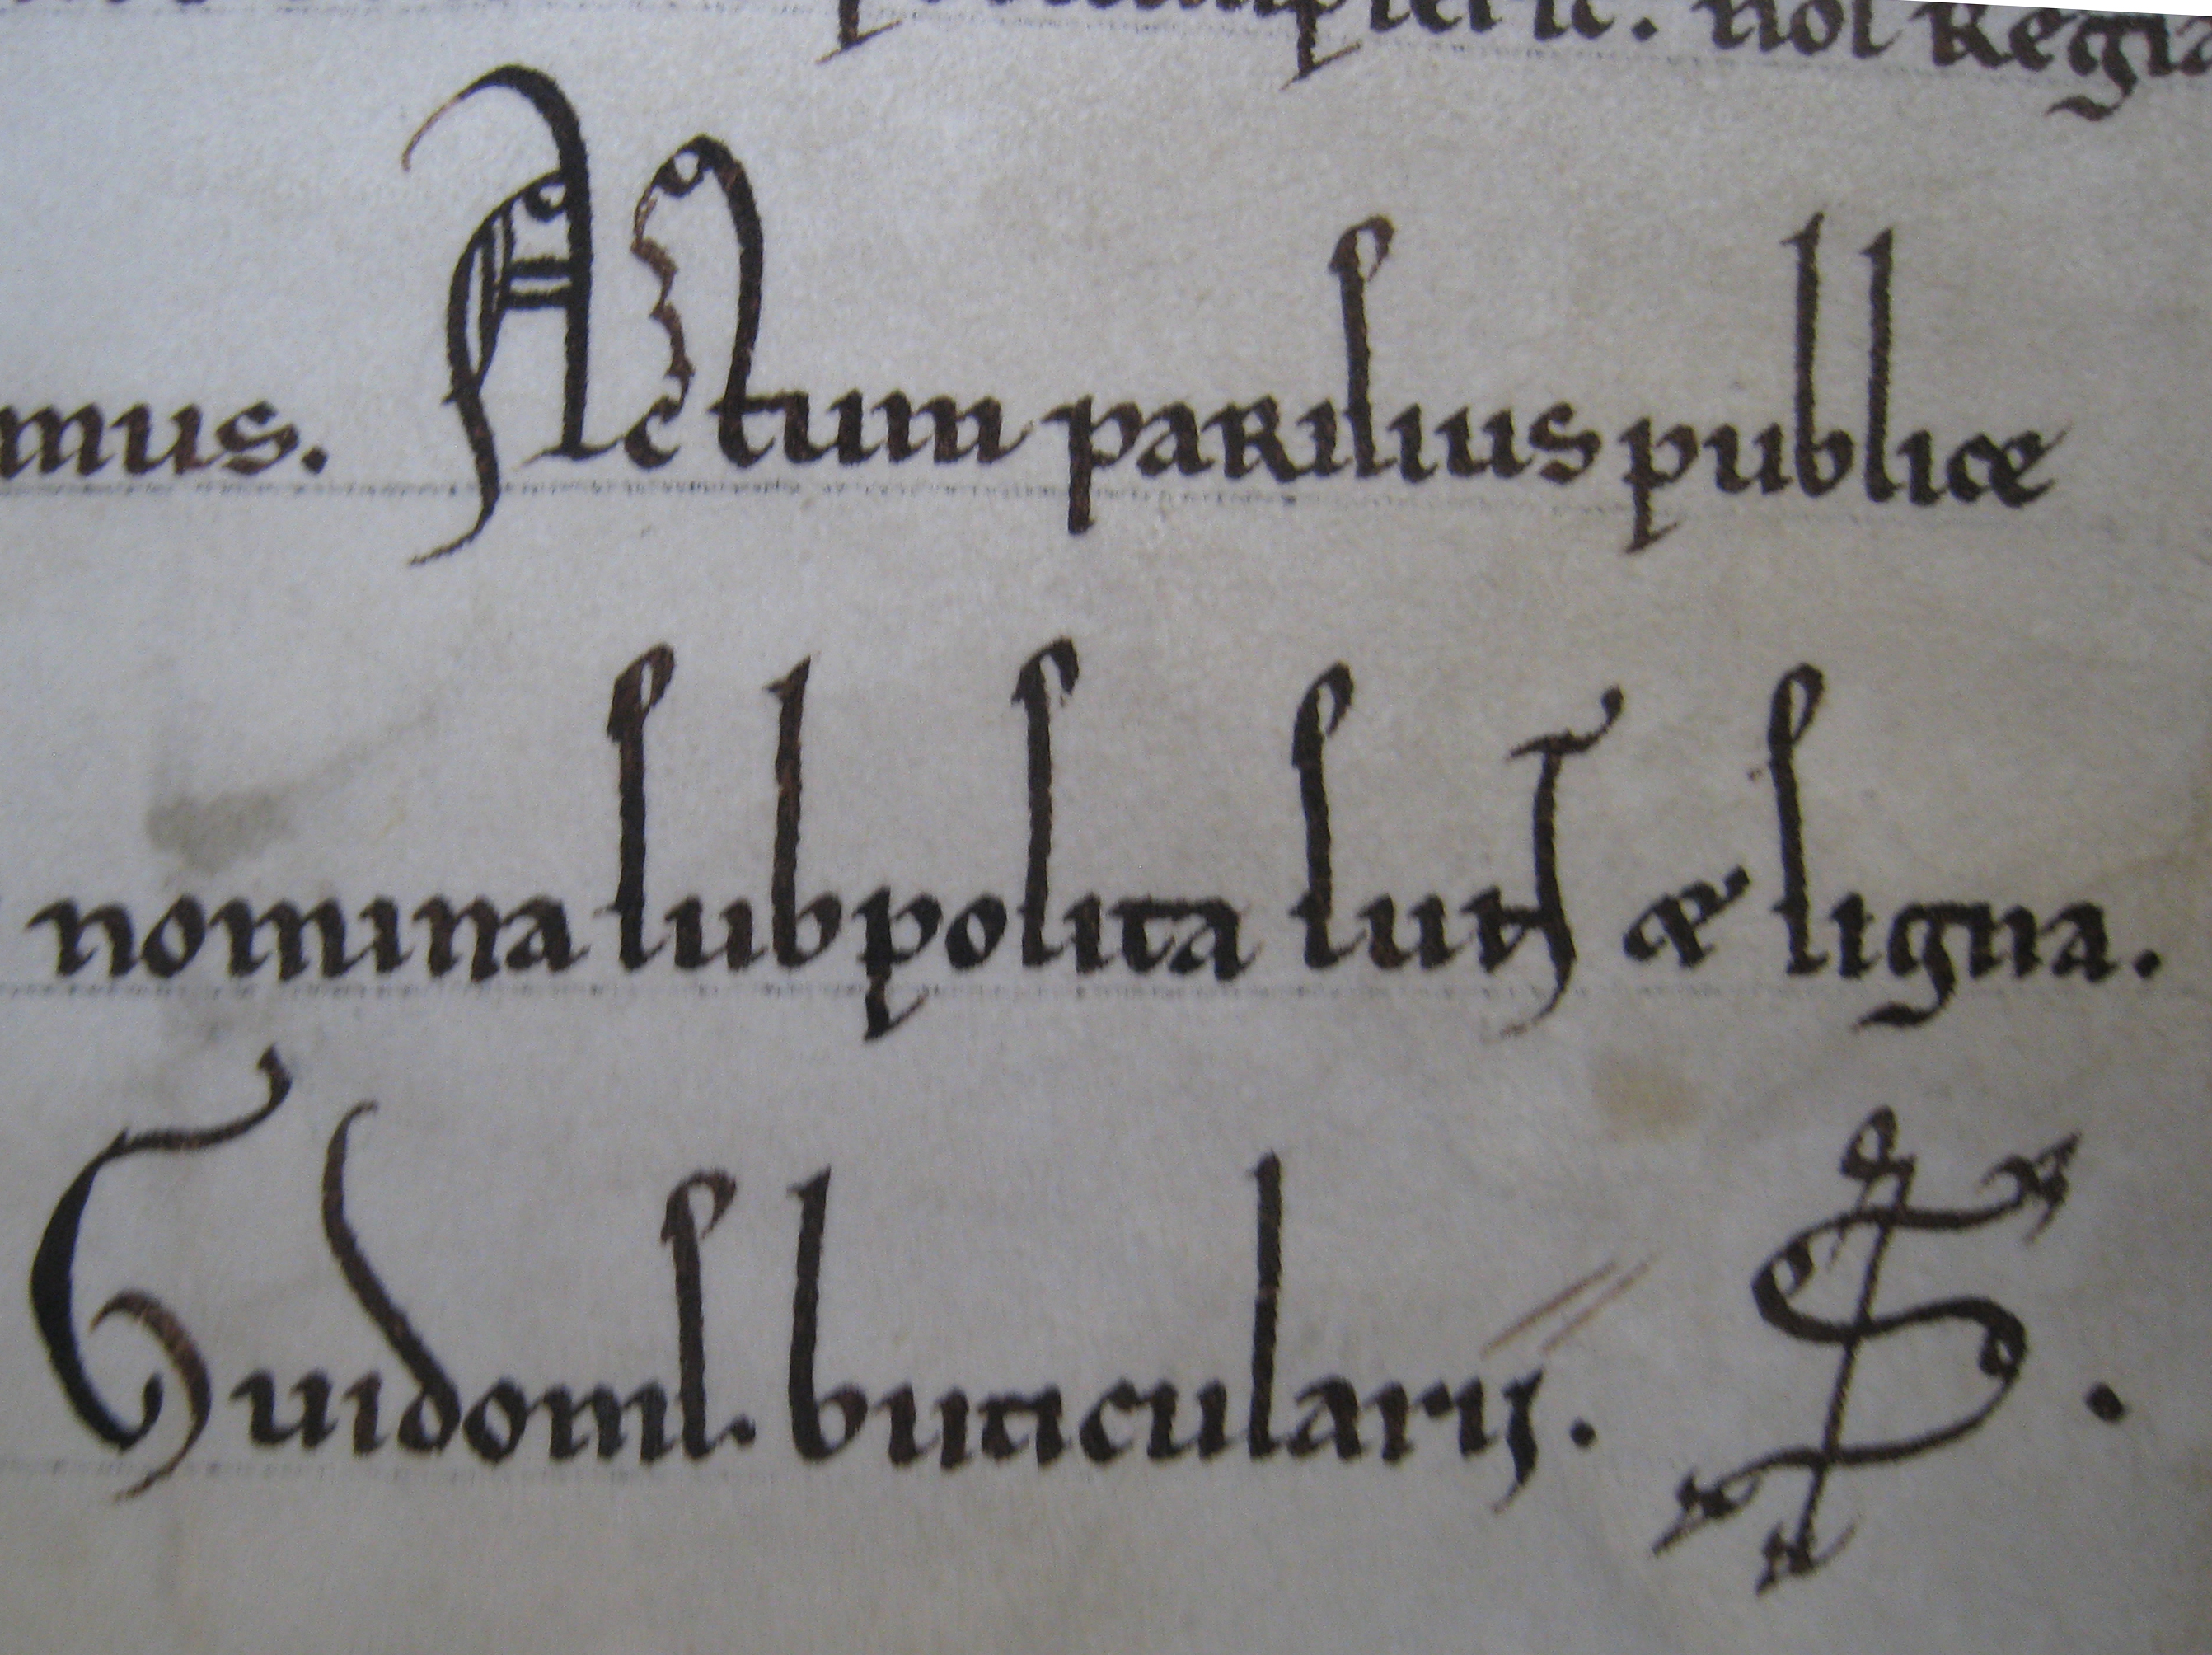 nos Regia
mus. Actum parisius publice
nomina subposita sunt et signa.
Guidonis. buticularij. S.